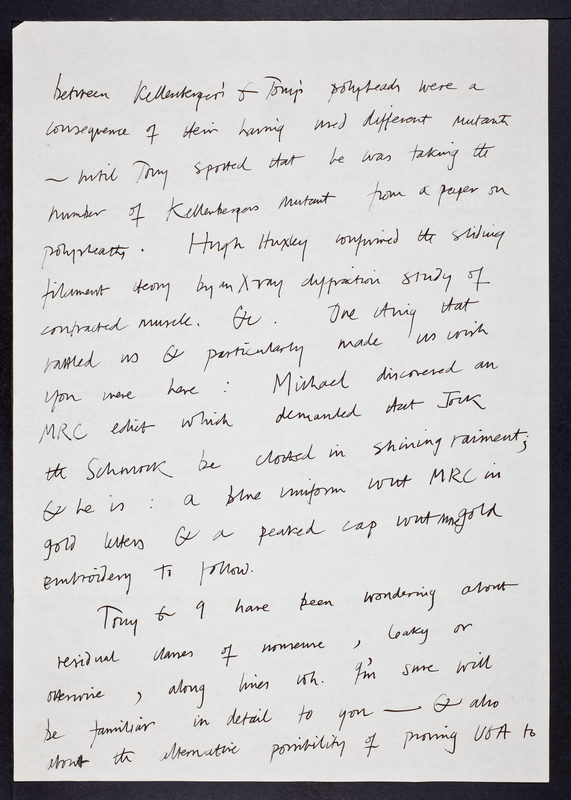 between Kellenberger's & Tony's polyheads were a
consequence of their having used different mutants
— until Tony spotted that he was taking the
number of Kellenbergers mutant from a paper on
polysheaths. Hugh Huxley confirmed the sliding
filament theory by an X ray diffraction study of
contracted muscle. &c. One thing that
rattled us & particularly made us wish
you were here : Michael discovered an
MRC edict which demanded that Jock
the Schmock be clothed in shining raiment;
& he is : a blue uniform with MRC in
gold letters & a peaked cap with gold
embroidery to follow.
Tony & I have been wondering about
residual classes of nonsense, leaky or
otherwise, along lines wh. I'm sure will
be familiar in detail to you — & also
about the alternative possibility of proving UGA to